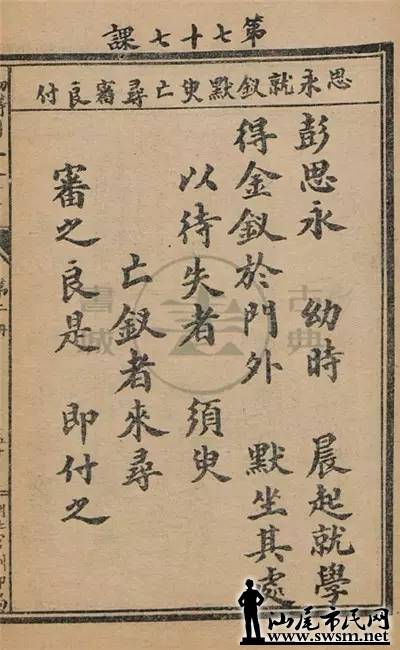 第七十七課
思永就釵默臾亡尋審良付
彭思永 幼時 晨起就學
得金釵於門外 默坐其處
以待失者 須臾
亡釵者來尋
審之良是 即付之
第二册
古典書城
汕尾市民网
www.swsm.net